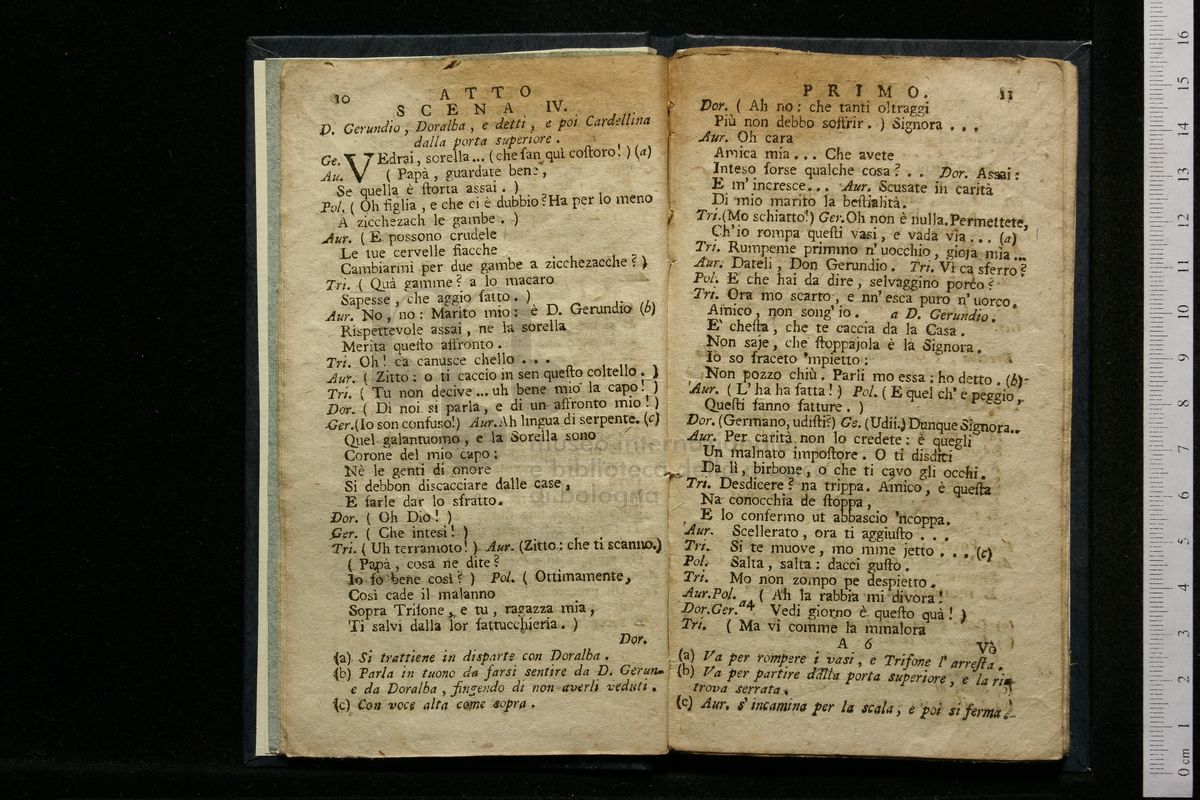 10 ATTO
SCENA IV.
D. Gerundio, Doralba, e detti, e poi Cardellina
dalla porta superiore.
Ge. VEdrai, sorella... (che fan quì coſtoro!) (a)
Au. ( Papà, guardate bene,
Se quella è ſtorta assai. )
Pol. ( Oh figlia, e che ci è dubbio? Ha per lo meno
A zicchezach le gambe. )
Aur. ( E possono crudele
Le tue cervelle fiacche
Cambiarmi per due gambe a zicchezacche? )
Tri. ( Quà gamme? a lo macaro
Sapesse, che aggio fatto. )
Aur. No, no: Marito mio: è D. Gerundio (b)
Rispettevole assai, ne la sorella
Merita queſto affronto.
Tri. Oh! ca canusce chello ...
Aur. ( Zitto: o ti caccio in sen queſto coltello. )
Tri. ( Tu non decive... uh bene mio la capo! )
Dor. ( Di noi si parla, e di un affronto mio! )
Ger. (Io son confuso!) Aur. Ah lingua di serpente. (c)
Quel galantuomo, e la Sorella sono
Corone del mio capo:
Nè le genti di onore
Si debbon discacciare dalle case,
E farle dar lo sfratto.
Dor. ( Oh Dio! )
Ger. ( Che intesi! )
Tri. ( Uh terramoto! ) Aur. (Zitto: che ti scanno.)
( Papà, cosa ne dite?
Io fo bene così? ) Pol. ( Ottimamente,
Così cade il malanno
Sopra Trifone, e tu, ragazza mia,
Ti salvi dalla lor fattucchieria. )
Dor.
(a) Si trattiene in disparte con Doralba.
(b) Parla in tuono da farsi sentire da D. Gerun-
e da Doralba, fingendo di non averli veduti.
(c) Con voce alta come sopra.
PRIMO. 11
Dor. ( Ah no: che tanti oltraggi
Più non debbo soffrir. ) Signora ...
Aur. Oh cara
Amica mia... Che avete
Inteso forse qualche cosa? .. Dor. Assai:
E m' incresce... Aur. Scusate in carità
Di mio marito la beſtialità.
Tri. (Mo schiatto!) Ger. Oh non è nulla. Permettete,
Ch'io rompa queſti vasi, e vada via... (a)
Tri. Rumpeme primmo n' uocchio, gioja mia...
Aur. Dateli, Don Gerundio. Tri. Vi ca sferro?
Pol. E che hai da dire, selvaggino porco?
Tri. Ora mo scarto, e nn' esca puro n' uorco.
Amico, non song' io. a D. Gerundio.
E' cheſta, che te caccia da la Casa.
Non saje, che ſtoppajola è la Signora.
Io so fraceto 'mpietto:
Non pozzo chiù. Parli mo essa: ho detto. (b)
Aur. ( L' ha ha fatta! ) Pol. ( E quel ch' è peggio,
Queſti fanno fatture. )
Dor. (Germano, udiſti?) Ge. (Udii.) Dunque Signora..
Aur. Per carità non lo credete: è quegli
Un malnato impoſtore. O ti disdici
Da lì, birbone, o che ti cavo gli occhi.
Tri. Desdicere? na trippa. Amico, è queſta
Na conocchia de ſtoppa,
E lo confermo ut abbascio 'ncoppa.
Aur. Scellerato, ora ti aggiuſto ...
Tri. Si te muove, mo mme jetto ... (c)
Pol. Salta, salta: dacci guſto.
Tri. Mo non zompo pe despietto.
Aur. Pol. ( Ah la rabbia mi divora!
Dor. Ger. a4 Vedi giorno è queſto quà! )
Tri. ( Ma vi comme la mmalora
A 6 Vò
(a) Va per rompere i vasi, e Trifone l' arreſta.
(b) Va per partire dalla porta superiore, e la ri-
trova serrata.
(c) Aur. s' incamina per la scala, e poi si ferma.
museo internazionale
e biblioteca della
di bologna